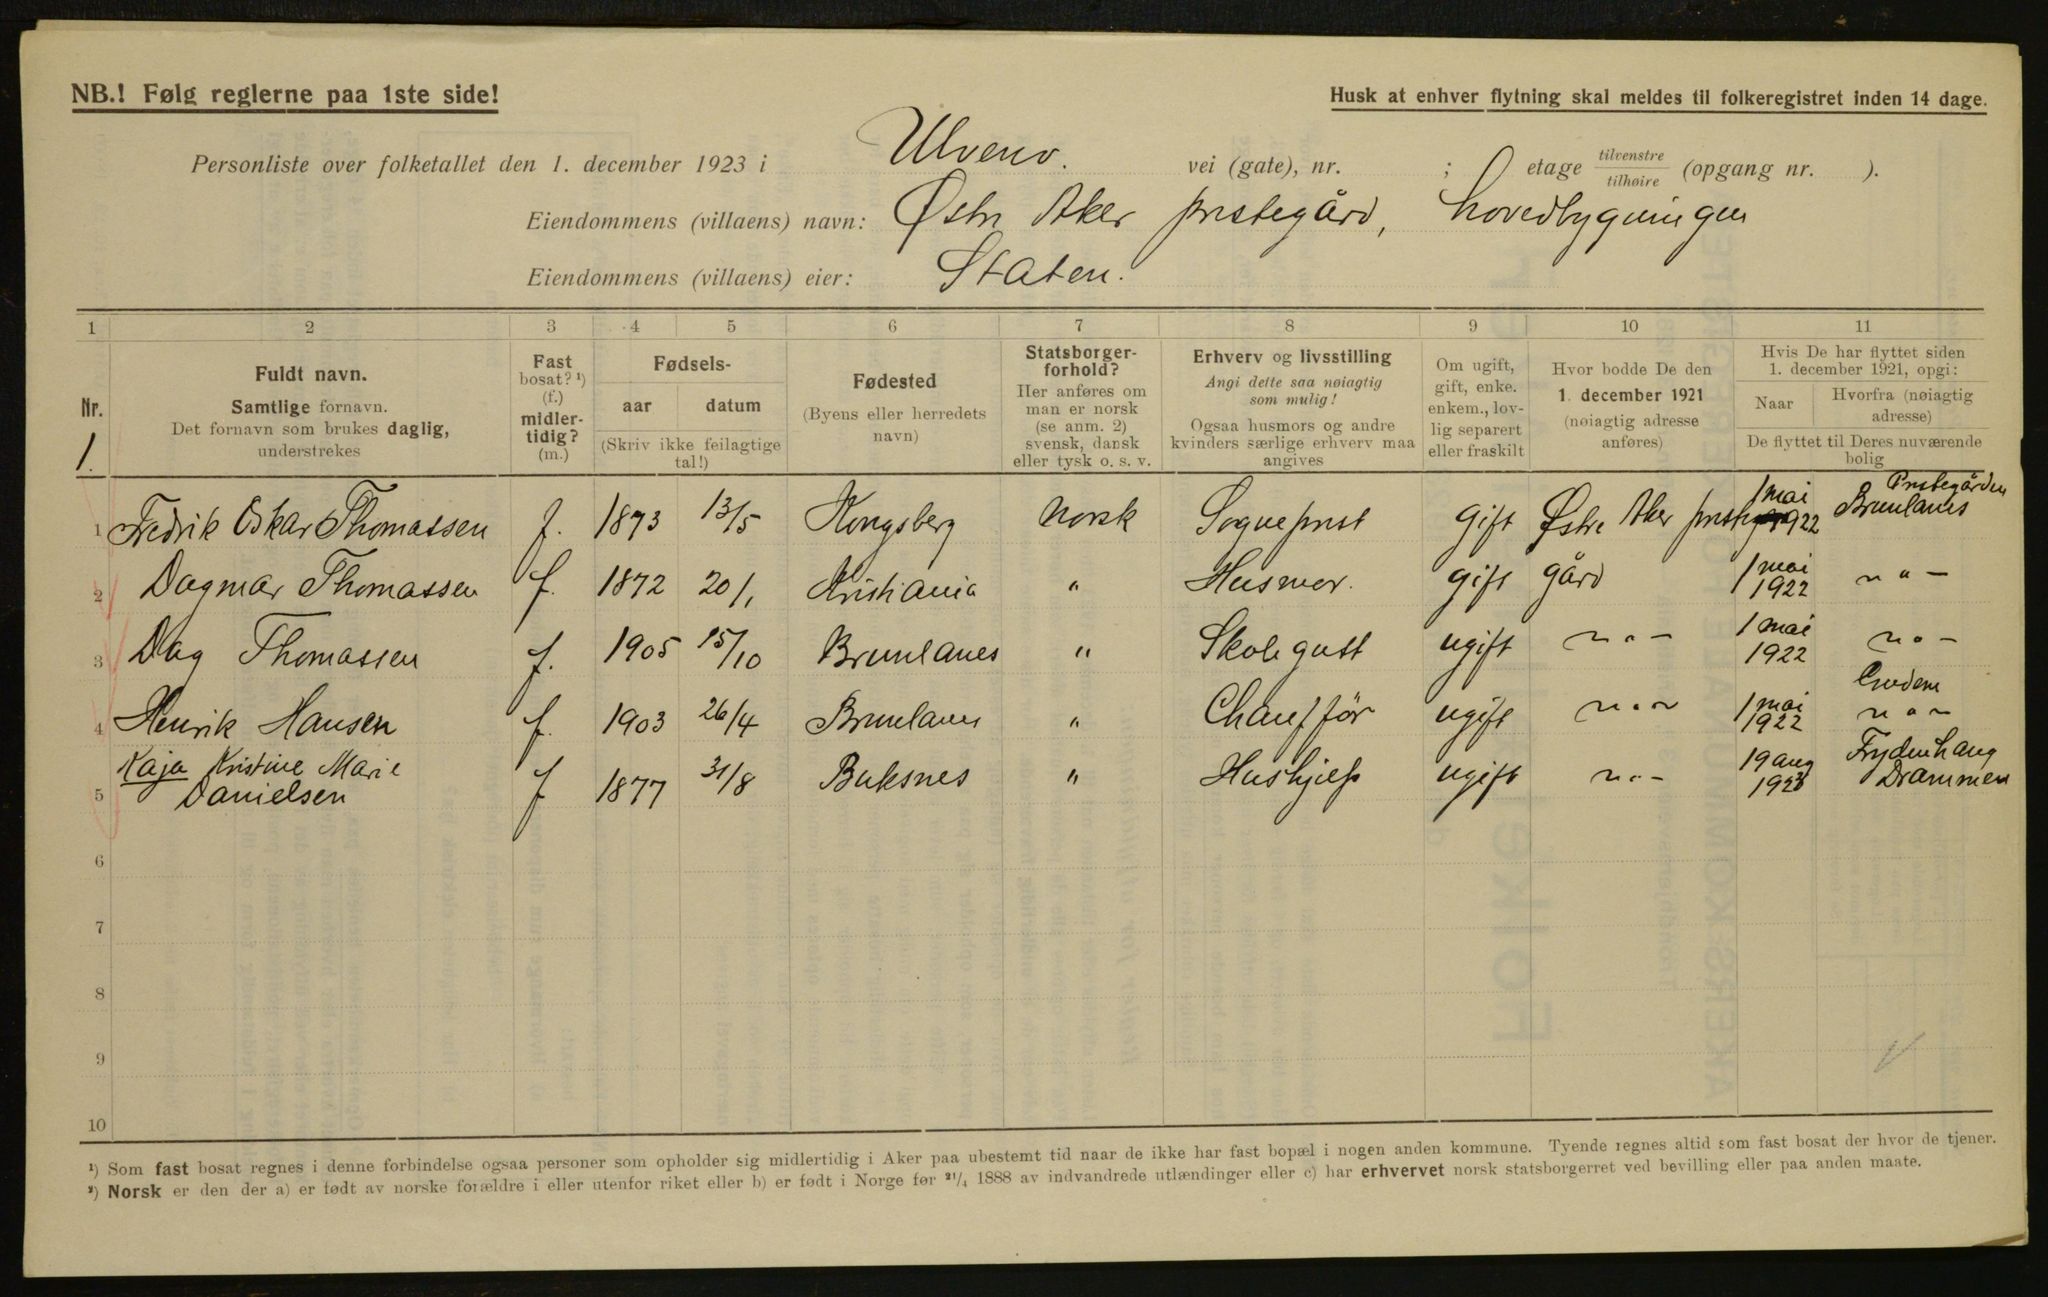 NB.! Følg reglerne paa 1ste side!
Husk at enhver flytning skal meldes til folkeregistret inden 14 dage.
Personliste over folketallet den 1. december 1923 i Ulvenv. vei (gate), nr. ; etage tilvenstre tilhøire (opgang nr. ).
Eiendommens (villaens) navn: Østre Aker prestegård, hovedbygningen
Eiendommens (villaens) eier: Staten.
1 2 3 4 5 6 7 8 9 10 11
Nr.
1.
Fuldt navn.
Samtlige fornavn.
Det fornavn som brukes daglig,
understrekes
Fast
bosat? ¹)
(f.)
midler-
tidig?
(m.)
Fødsels-
aar datum
(Skriv ikke feilagtige
tal!)
Fødested
(Byens eller herredets
navn)
Statsborger-
forhold?
Her anføres om
man er norsk
(se anm. 2)
svensk, dansk
eller tysk o. s. v.
Erhverv og livsstilling
Angi dette saa nøiagtig
som mulig!
Ogsaa husmors og andre
kvinders særlige erhverv maa
angives
Om ugift,
gift, enke.
enkem., lov-
lig separert
eller fraskilt
Hvor bodde De den
1. december 1921
(nøiagtig adresse
anføres)
Hvis De har flyttet siden
1. december 1921, opgi:
Naar
Hvorfra (nøiagtig
adresse)
De flyttet til Deres nuværende
bolig
1 Fredrik Oskar Thomassen f. 1873 13/5 Kongsberg Norsk Sogneprest gift Østre Aker preste 1 mai 1922 Prestegården Brunlanes
2 Dagmar Thomassen f. 1872 20/1 Kristiania " Husmor. gift gård 1 mai 1922 " " -
3 Dag Thomassen f. 1905 15/10 Brunlanes " Skolegutt ugift " " - 1 mai 1922 " " -
4 Henrik Hansen f. 1903 26/4 Brunlanes " Chaufför ugift " " " 1 mai 1922 " " "
5 Kaja Kristine Marie Danielsen f 1877 31/8 Buksnes " Hushjelp ugift " " - 19 aug 1923 Frydenhaug Drammen
6
7
8
9
10
¹) Som fast bosat regnes i denne forbindelse ogsaa personer som opholder sig midlertidig i Aker paa ubestemt tid naar de ikke har fast bopæl i nogen anden kommune. Tyende regnes altid som fast bosat der hvor de tjener.
²) Norsk er den der a) er født av norske forældre i eller utenfor riket eller b) er født i Norge før ²¹/₄ 1888 av indvandrede utlændinger eller c) har erhvervet norsk statsborgerret ved bevilling eller paa anden maate.